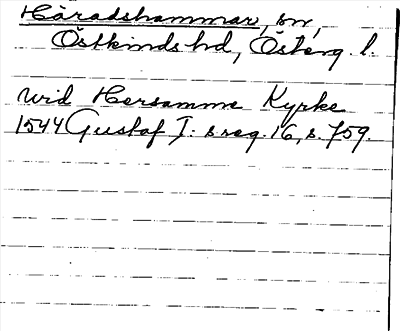 Häradshammar, sn,
Östkinds hd, Österg. l.
wid Hersamme Kyrke
1544 Gustaf I:s reg. 16, s. 759.